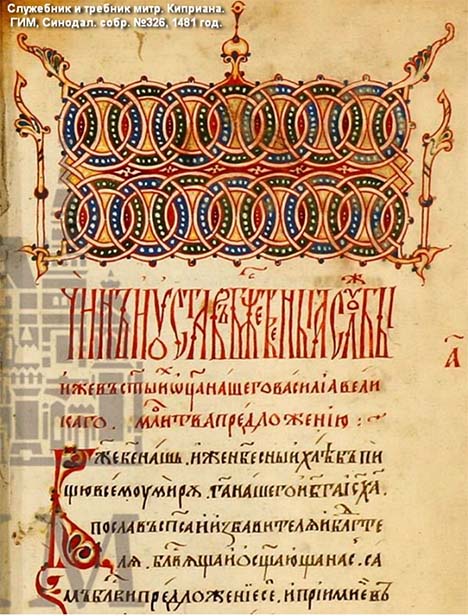 Служебник и требник митр. Киприана.
ГИМ, Синодал. собр. №326, 1481 год.
чинъ и уставъ бжтвеныѧ слоужбы
а҃
иже въ ст҃ыⷯ ѿц҃а нашего василіа вели
каго . мл҃тва предложенію :
Бж҃е бе҃ нашь , иже нбⷭ҇ный хлѣбъ пи
щю всемоу мирꙋ . га҃ нашего и ба҃ іс҃ ха҃ ,
пославъ сп҃са и избавителѧ и
лѧ . блв҃ѧща и осщ҃ающа нас . са
мъ блв҃и предложеніе се . и пріими е въ